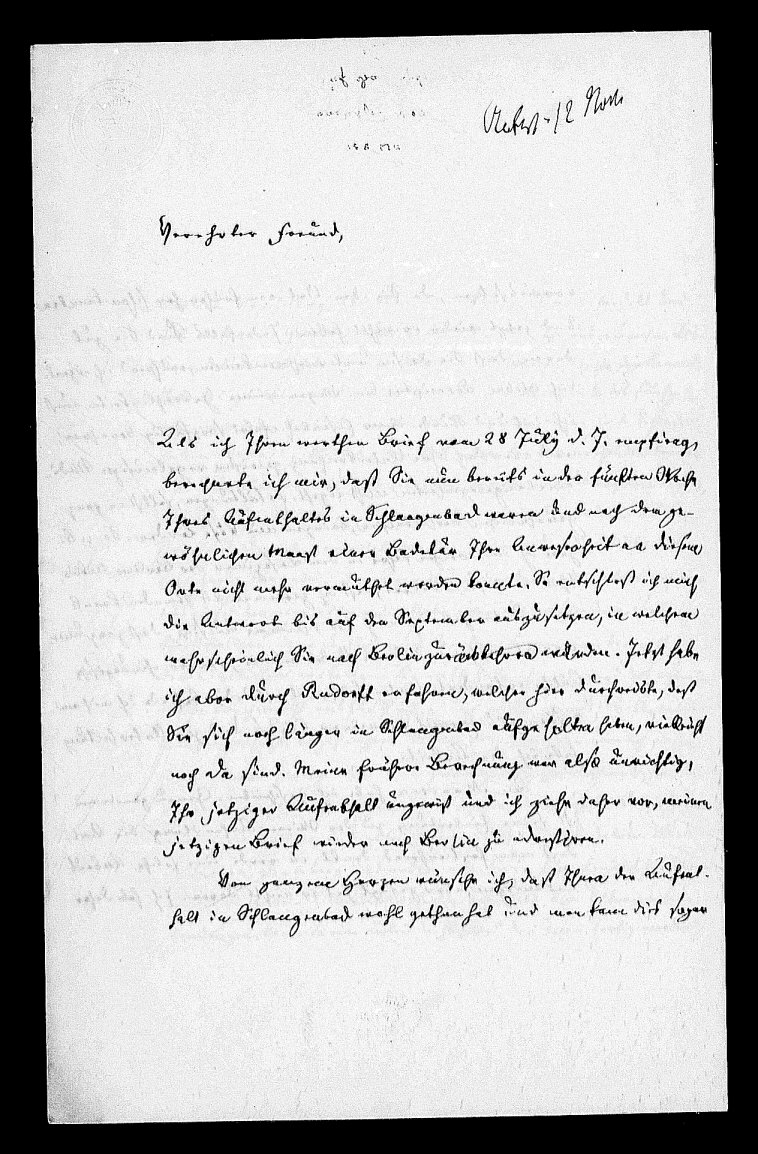 Verehrter Freund,
Als ich Ihren werthen Brief vom 28 July d. J. empfing,
berechnete ich mir, daß Sie nun bereits in der fünften Woche
Ihres Aufenthaltes in Schlangenbad waren und nach dem ge-
wöhnlichen Maaß einer Badekur Ihre Anwesenheit an diesem
Orte nicht mehr vermuthet werden konnte. So entschloß ich mich
die Antwort bis auf den September auszusetzen, in welchem
wahrscheinlich Sie nach Berlin zurückkehren würden. Jetzt habe
ich aber durch Rudorff erfahren, welcher hier durchreiste, daß
Sie sich noch länger in Schlangenbad aufgehalten haben, vielleicht
noch da sind. Meine frühere Berechnung war also unrichtig,
Ihr jetziger Aufenthalt ungewiß und ich ziehe daher vor, meinen
jetzigen Brief wieder nach Berlin zu adressiren.
Von ganzem Herzen wünsche ich, daß Ihnen der Aufent-
halt in Schlangenbad wohl gethan hat und man kann dies sogar